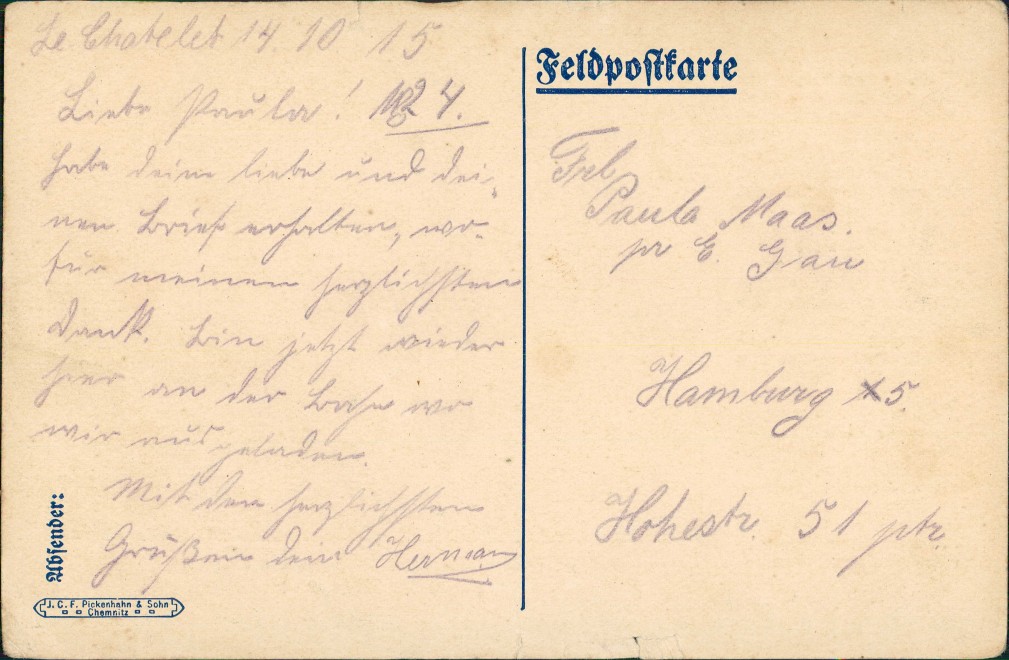 Le Chatelet 14 10 15
Liebe Paula! 4.
Habe deine liebe und dei-
nen Brief erhalten, wo-
für meinen herzlichsten
Dank. Bin jetzt wieder
hier an der Bahn wo
wir ausgeladen.
Mit den herzlichsten
Grüßen dein Herman
Absender:
J. C. F. Pickenhahn & Sohn
Chemnitz
Feldpostkarte
Frl
Paula Maas.
pr E. Gau
Hamburg 5.
Hohestr. 51 ptr.